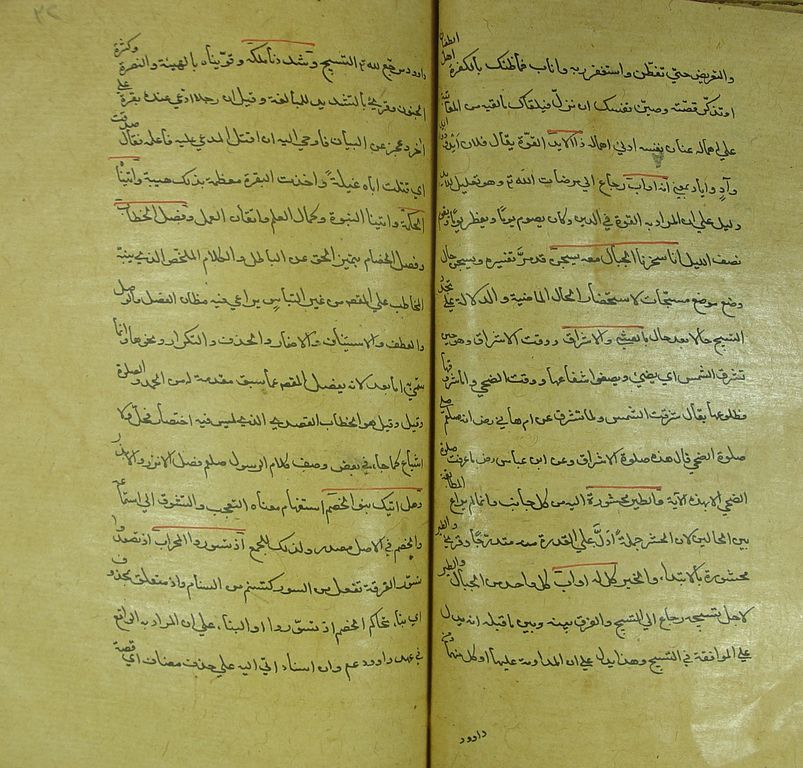 والتعريض حتى تفطن واستغفر ربه واناب فما ظنك بالكفرة اهل الطغيان
او تذكر قصته وصن نفسك ان تزل فيلقاك ما لقيه من المعاتبة
على اهماله عنان نفسه ادنى اهمال ذا الايد القوة يقال فلان ايد
وآد واياد بمعنى انه اواب رجاع الى مرضات الله تع وهو تعليل للايد
دليل على ان المراد به القوة في الدين وكان يصوم يوما ويفطر يوما ويقوم
نصف الليل انا سخرنا الجبال معه يسبحن قد مر تفسيره ويسبحن حال
وضع موضع مسبحات لاستحضار الحال الماضية والدلالة على تجدد
التسبيح حالا بعد حال بالعشي والاشراق ووقت الاشراق وهو حين
تشرق الشمس اي يضئ ويصفوا شعاعها وهو وقت الضحى واما شروقها
فطلوعها يقال شرقت الشمس ولما تشرق عن ام هاني رض انه صلعم صلى
صلوة الضحى قال هذه صلوة الاشراق وعن ابن عباس رض ما عرفت صلوة
الضحى الا بهذه الآية والطير محشورة اليه من كل جانب وانما لم يراع المطابقة
بين الحالين لان الحشر جملة ادل على القدرة منه متدرجا وقرئ والطير
محشورة بالابتداء والخبر كل له اواب كل واحد من الجبال والطير
لاجل تسبيحه رجاع الى التسبيح والفرق بينه وبين ما قبله انه يدل
على الموافقة في التسبيح وهذا يدل على المداومة عليها او كل منهما ومن
داوود
داوود مرجع لله تع التسبيح وشددنا ملكه وقويناه بالهيبة والنصرة وكثرة
الجنود وقرئ بالتشديد للمبالغة وقيل ان رجلا ادعى عنده بقرة على
آخر وعجز عن البيان فاوحى اليه ان اقتل المدعى عليه فاعلمه فقال صدقت
اي قتلت اباه غيلة واخذت البقرة فعظمة بذلك هيبة وآتيناه
الحكمة وآتينا النبوة وكمال العلم واتقان العمل وفصل الخطاب
وفصل الخصام بتميز الحق عن الباطل والكلام الملخص الذي ينبه
المخاطب على المقصد من غير التباس يراعى فيه مظان الفصل والوصل
والعطف والاستيناف والاضمار والحذف والتكرار ونحوها وانما
سمي به اما بعد لانه يفصل المقصد عما سبق مقدمة له من الحمد والصلوة
وقيل هو الخطاب القصد الذي ليس فيه اختصار مخل ولا
اشباع كما جاء في بعض وصف كلام الرسول صلعم فصل لا نزر ولا هذر
وهل اتيك نبؤا الخصم استفهام معناه التعجب والتشوق الى استماعه
والخصم في الاصل مصدر ولذلك للجمع اذ تسوروا المحراب اذ تصعدوا
سور الغرفة تفعل من السور كتسنم من السنام واذ متعلق بمحذوف
اي نبأ تحاكم الخصم اذ تسوروا او النبأ على ان المراد به الواقع
في عهد داوود عم وان اسناد اتى اليه على حذف مضاف اي قصة